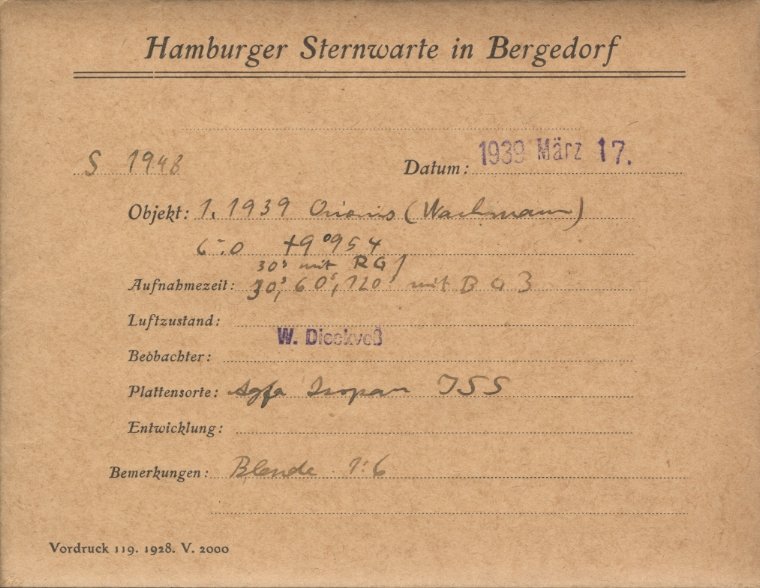 Hamburger Sternwarte in Bergedorf
S 1948
Datum: 1939 März 17.
Objekt: 1, 1939 Orionis (Wachmann)
+9°954
30s mit RG1
Aufnahmezeit: 30s, 60s, 120 mit BG3
Luftzustand:
W. Dieckvoß
Beobachter:
Plattensorte: Agfa Isopan ISS
Entwicklung:
Bemerkungen: Blende 1:6
Vordruck 119. 1928. V. 2000